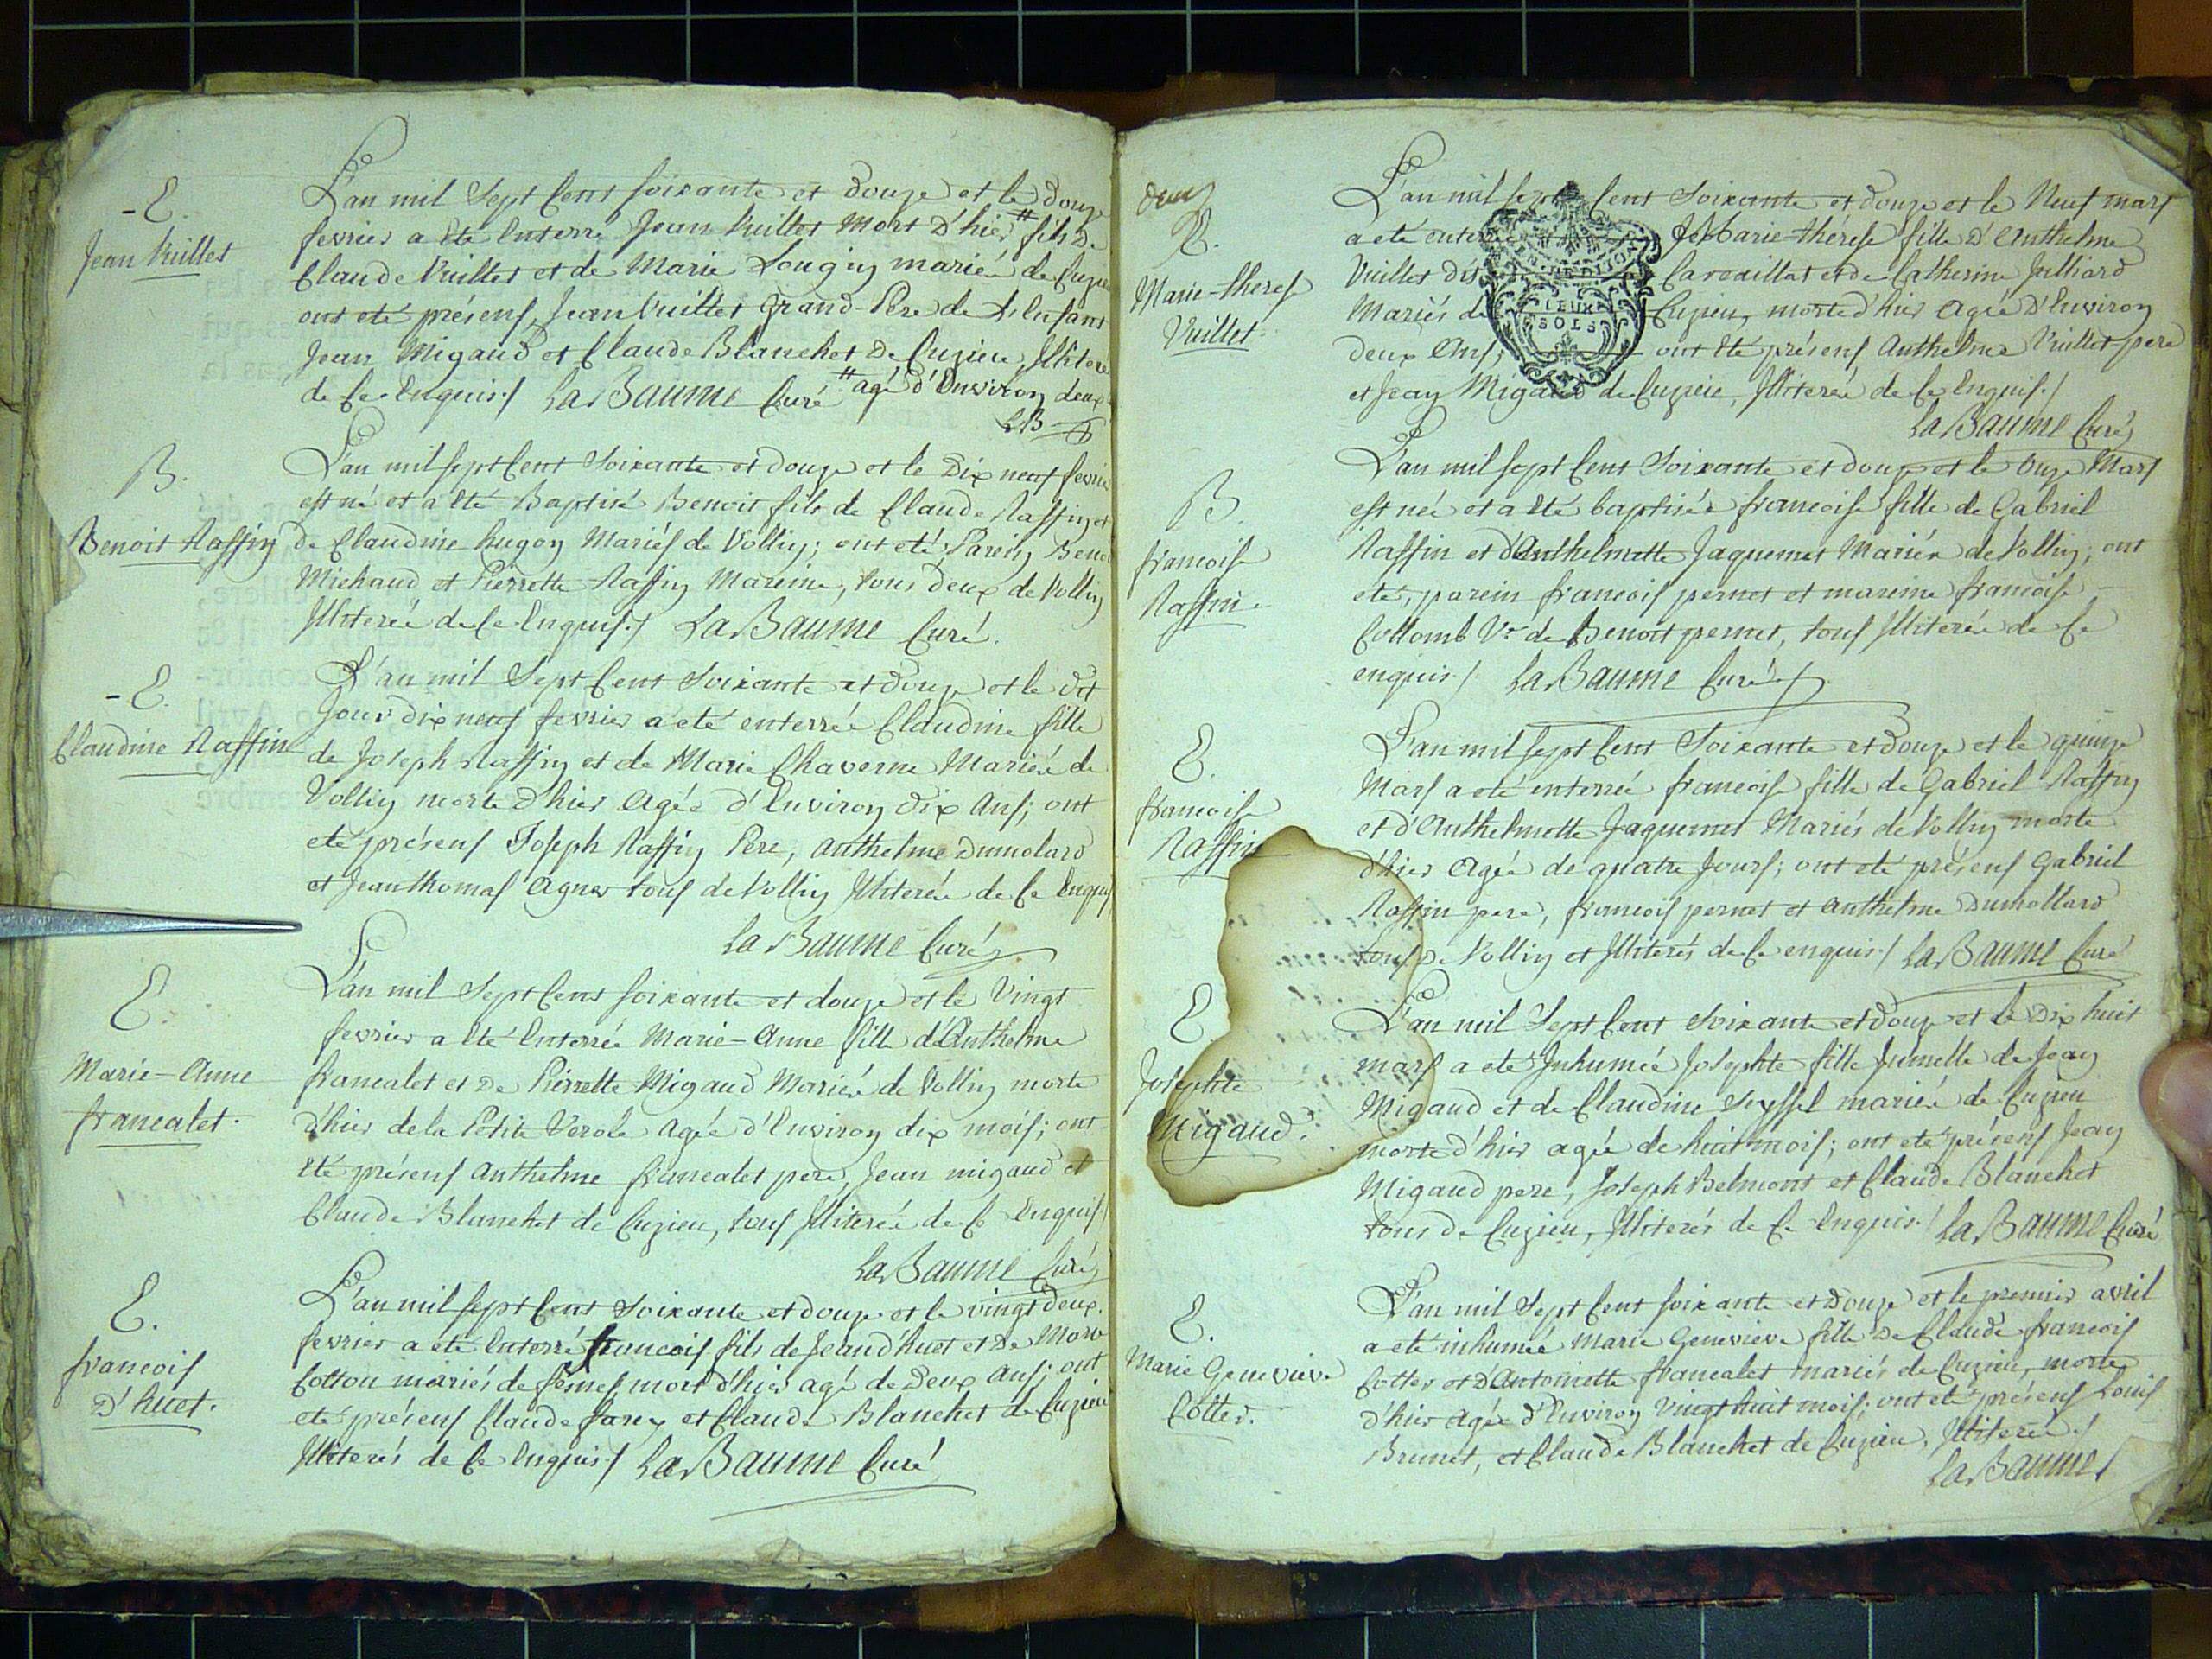 -E.
Jean Vuillet
L'an mil sept Cent soixante et douze et le douze
fevrier a été Enterré Jean Vuillet mort d'hier # fils de
Claude Vuillet et de Marie Lougin mariés de Cuzieu
ont eté présens, Jean Vuillet grand-Pere de l'Enfant
Jean Migaud et Claude Blanchet de Cuzieu, Illiterés
de Ce Enquis./ La Baume Curé # agé d'Environ deux
LB
B.
Benoit Raffin
L'an mil sept Cent soixante et douze et le Dix neuf fevrier
est né et a été Baptisé Benoit fils de Claude Raffin et
de Claudine hugon Mariés de Vollin; ont eté, Parein, Benoit
Michaud et Pierrette Raffin Mareine, tous deux de Vollin
Illiterés de Ce Enquis./ La Baume Curé.
-E.
Claudine Raffin
L'an mil Sept Cent Soixante et douze et le dit
Jour dix neuf fevrier a eté enterrée Claudine fille
de Joseph Raffin et de Marie Chaverne Mariés de
Vollin morte d'hier Agée d'Environ dix Ans; ont
eté présens Joseph Raffin Pere, Anthelme Dumolard
et Jean thomas Agner tous de Vollin Illiterés de Ce Enquis
La Baume Curé
E.
Marie-Anne
francalet.
L'an mil Sept Cent soixante et douze et le Vingt
fevrier a été Enterrée Marie-Anne fille d'Anthelme
francalet et De Pierrette Migaud Mariés de Vollin morte
d'hier de la Petite Verole Agée d'Environ dix mois; ont
été présens Anthelme francalet pere, Jean migaud et
Claude Blanchet de Cuzieu, tous Illiterés de Ce Enquis/
La Baume Curé
E.
francois
D'huet.
L'an mil sept Cent soixante et douze et le vingt deux.
fevrier a eté Enterré francois fils de Jean d'huet et De Marie
Cotton mariés de mort d'hier agé de Deux Ans; ont
eté présens Claude et Claude Blanchet de Cuzieu
Illiterés de Ce Enquis/ La Baume Curé
deux
E.
Marie-therese
Vuillet.
L'an mil sept Cent Soixante et douze et le Neuf mars
a eté enterrée Marie-thérese fille d'Anthelme
Vuillet dit Cavouillat et de Catherine Julliard
Mariés de Cuzieu, morte d'hier Agée d'Environ
deux Ans; ont été présens Anthelme Vuillet pere
et Jean Migaud de Cuzieu, Illiterés de Ce Enquis./
La Baume Curé
DEUX
SOLS
B.
francoise
Raffin.
L'an mil sept Cent Soixante et douze et le Onze Mars
est née et a été baptisée francoise fille de Gabriel
Raffin et d'Anthelmette Jaquemet Mariés de Vollin; ont
eté, parein francois pernet et mareine francoise
Collomb Vve de Benoit pernet, tous Illiterés de Ce
enquis./ La Baume Curé
E.
francoise
Raffin
L'an mil sept Cent Soixante et douze et le quinze
Mars a eté enterrée francoise fille de Gabriel Raffin
et d'Anthelmette Jaquemet Mariés de Vollin morte
d'hier Agée de quatre Jours; ont eté présens Gabriel
Raffin pere, francois pernet et Anthelme Dumollard
tous De Vollin et Illiterés de Ce enquis/ La Baume Curé
E
Josephte
Migaud.
L'an mil Sept Cent Soixante et douze et le Dix huit
mars a eté Inhumée Josephte fille jumelle de Jean
Migaud et de Claudine Seyssel mariés de Cuzieu
morte d'hier agée de huit mois; ont eté présens Jean
Migaud pere, Joseph Belmont et Claude Blanchet
tous De Cuzieu, Illiterés de Ce Enquis./ La Baume Curé
E.
Marie Genevieve
Cotter.
L'an mil Sept Cent soixante et Douze et le premier avril
a eté inhumée Marie Genevieve fille De Claude francois
Cotter et d'Antoinette francalet mariés de Cuzieu, morte
d'hier Agée d'Environ Vingt huit mois; ont eté présens Louis
Brunet, et Claude Blanchet de Cuzieu, Illiterés./
La Baume